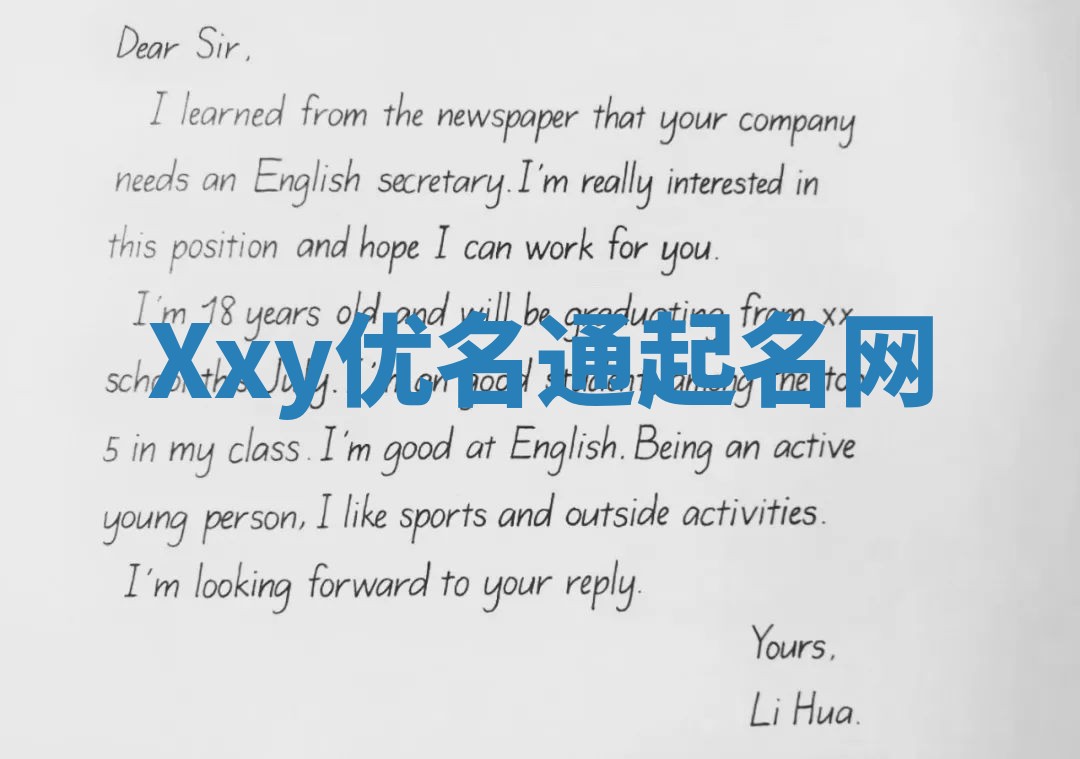 Dear Sir,
I learned from the newspaper that your company
needs an English secretary. I'm really interested in
this position and hope I can work for you.
I'm 18 years old and will be graduating from xx
Xxy优名通起名网
school this July. I'm an good student among the top
5 in my class. I'm good at English. Being an active
young person, I like sports and outside activities.
I'm looking forward to your reply.
Yours,
Li Hua.